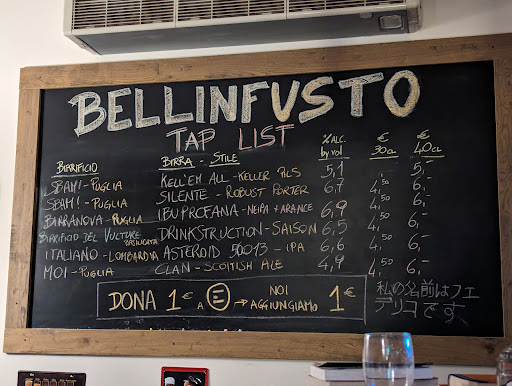 BELLINFUSTO
TAP LIST
BIRRIFICIO BIRRA - STILE % ALC. by vol € 30cl € 40cl
SBAM! - PUGLIA KELL'EM ALL - KELLER PILS 5,1 4,- 5,-
SBAM! - PUGLIA SILENTE - ROBUST PORTER 6,7 4,50 6,-
BIRRANOVA - PUGLIA IBUPROFANA - NEIPA + ARANCE 6,9 4,50 6,-
BIRRIFICIO DEL VULTURE BASILICATA DRINKSTRUCTION - SAISON 6,5 4,50 6,-
ITALIANO - LOMBARDIA ASTEROID 56013 - IPA 6,6 4,50 6,-
MOI - PUGLIA CLAN - SCOTTISH ALE 4,9 4,50 6,-
DONA 1€ A E → NOI AGGIUNGIAMO 1€
私の名前はフェ
デリコです